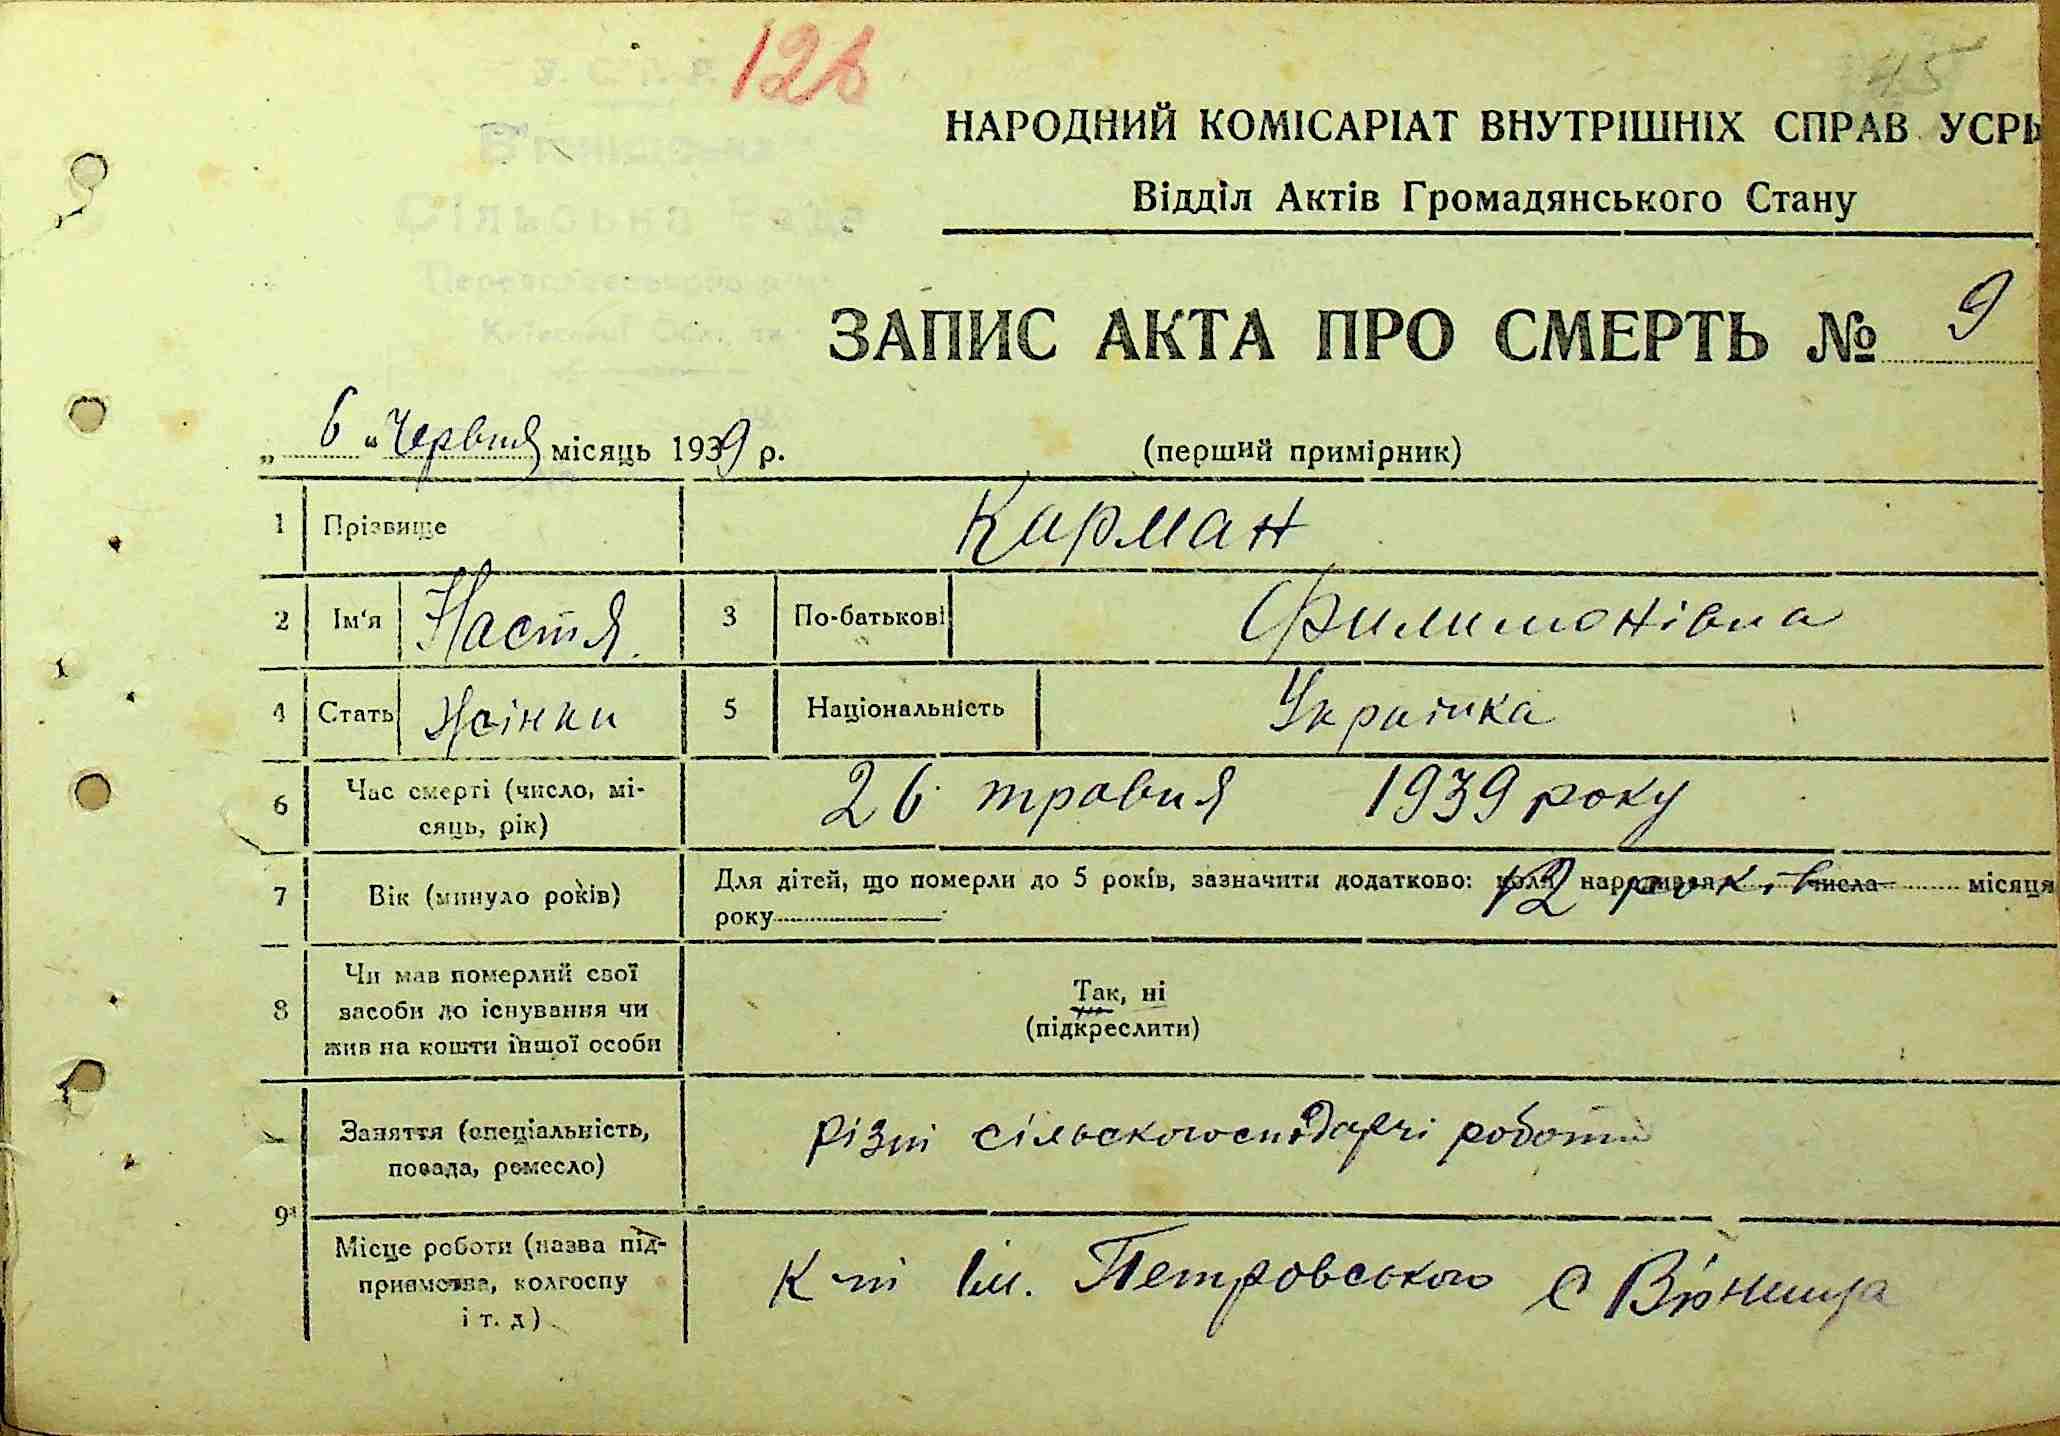 126
45
НАРОДНИЙ КОМІСАРІАТ ВНУТРІШНІХ СПРАВ УСРР
Відділ Актів Громадянського Стану
Сільська Рада
ЗАПИС АКТА ПРО СМЕРТЬ № 9
„ 6 “ Червня місяць 1939 р. (перший примірник)
1 Прізвище Карман
2 Ім'я Настя 3 По-батькові Филимонівна
4 Стать жінки 5 Національність Українка
6 Час смерті (число, мі-
сяць, рік) 26 травня 1939 року
7 Вік (минуло років) Для дітей, що померли до 5 років, зазначити додатково: коли народився числа місяця
12 років
року
8 Чи мав померлий свої
засоби до існування чи
жив на кошти іншої особи
Так, ні
(підкреслити)
9 Заняття (спеціальність,
посада, ремесло) різні сільскогосподарчі роботи
Місце роботи (назва під-
приємства, колгоспу
і т. д) К-п ім. Петровського с Вінниця